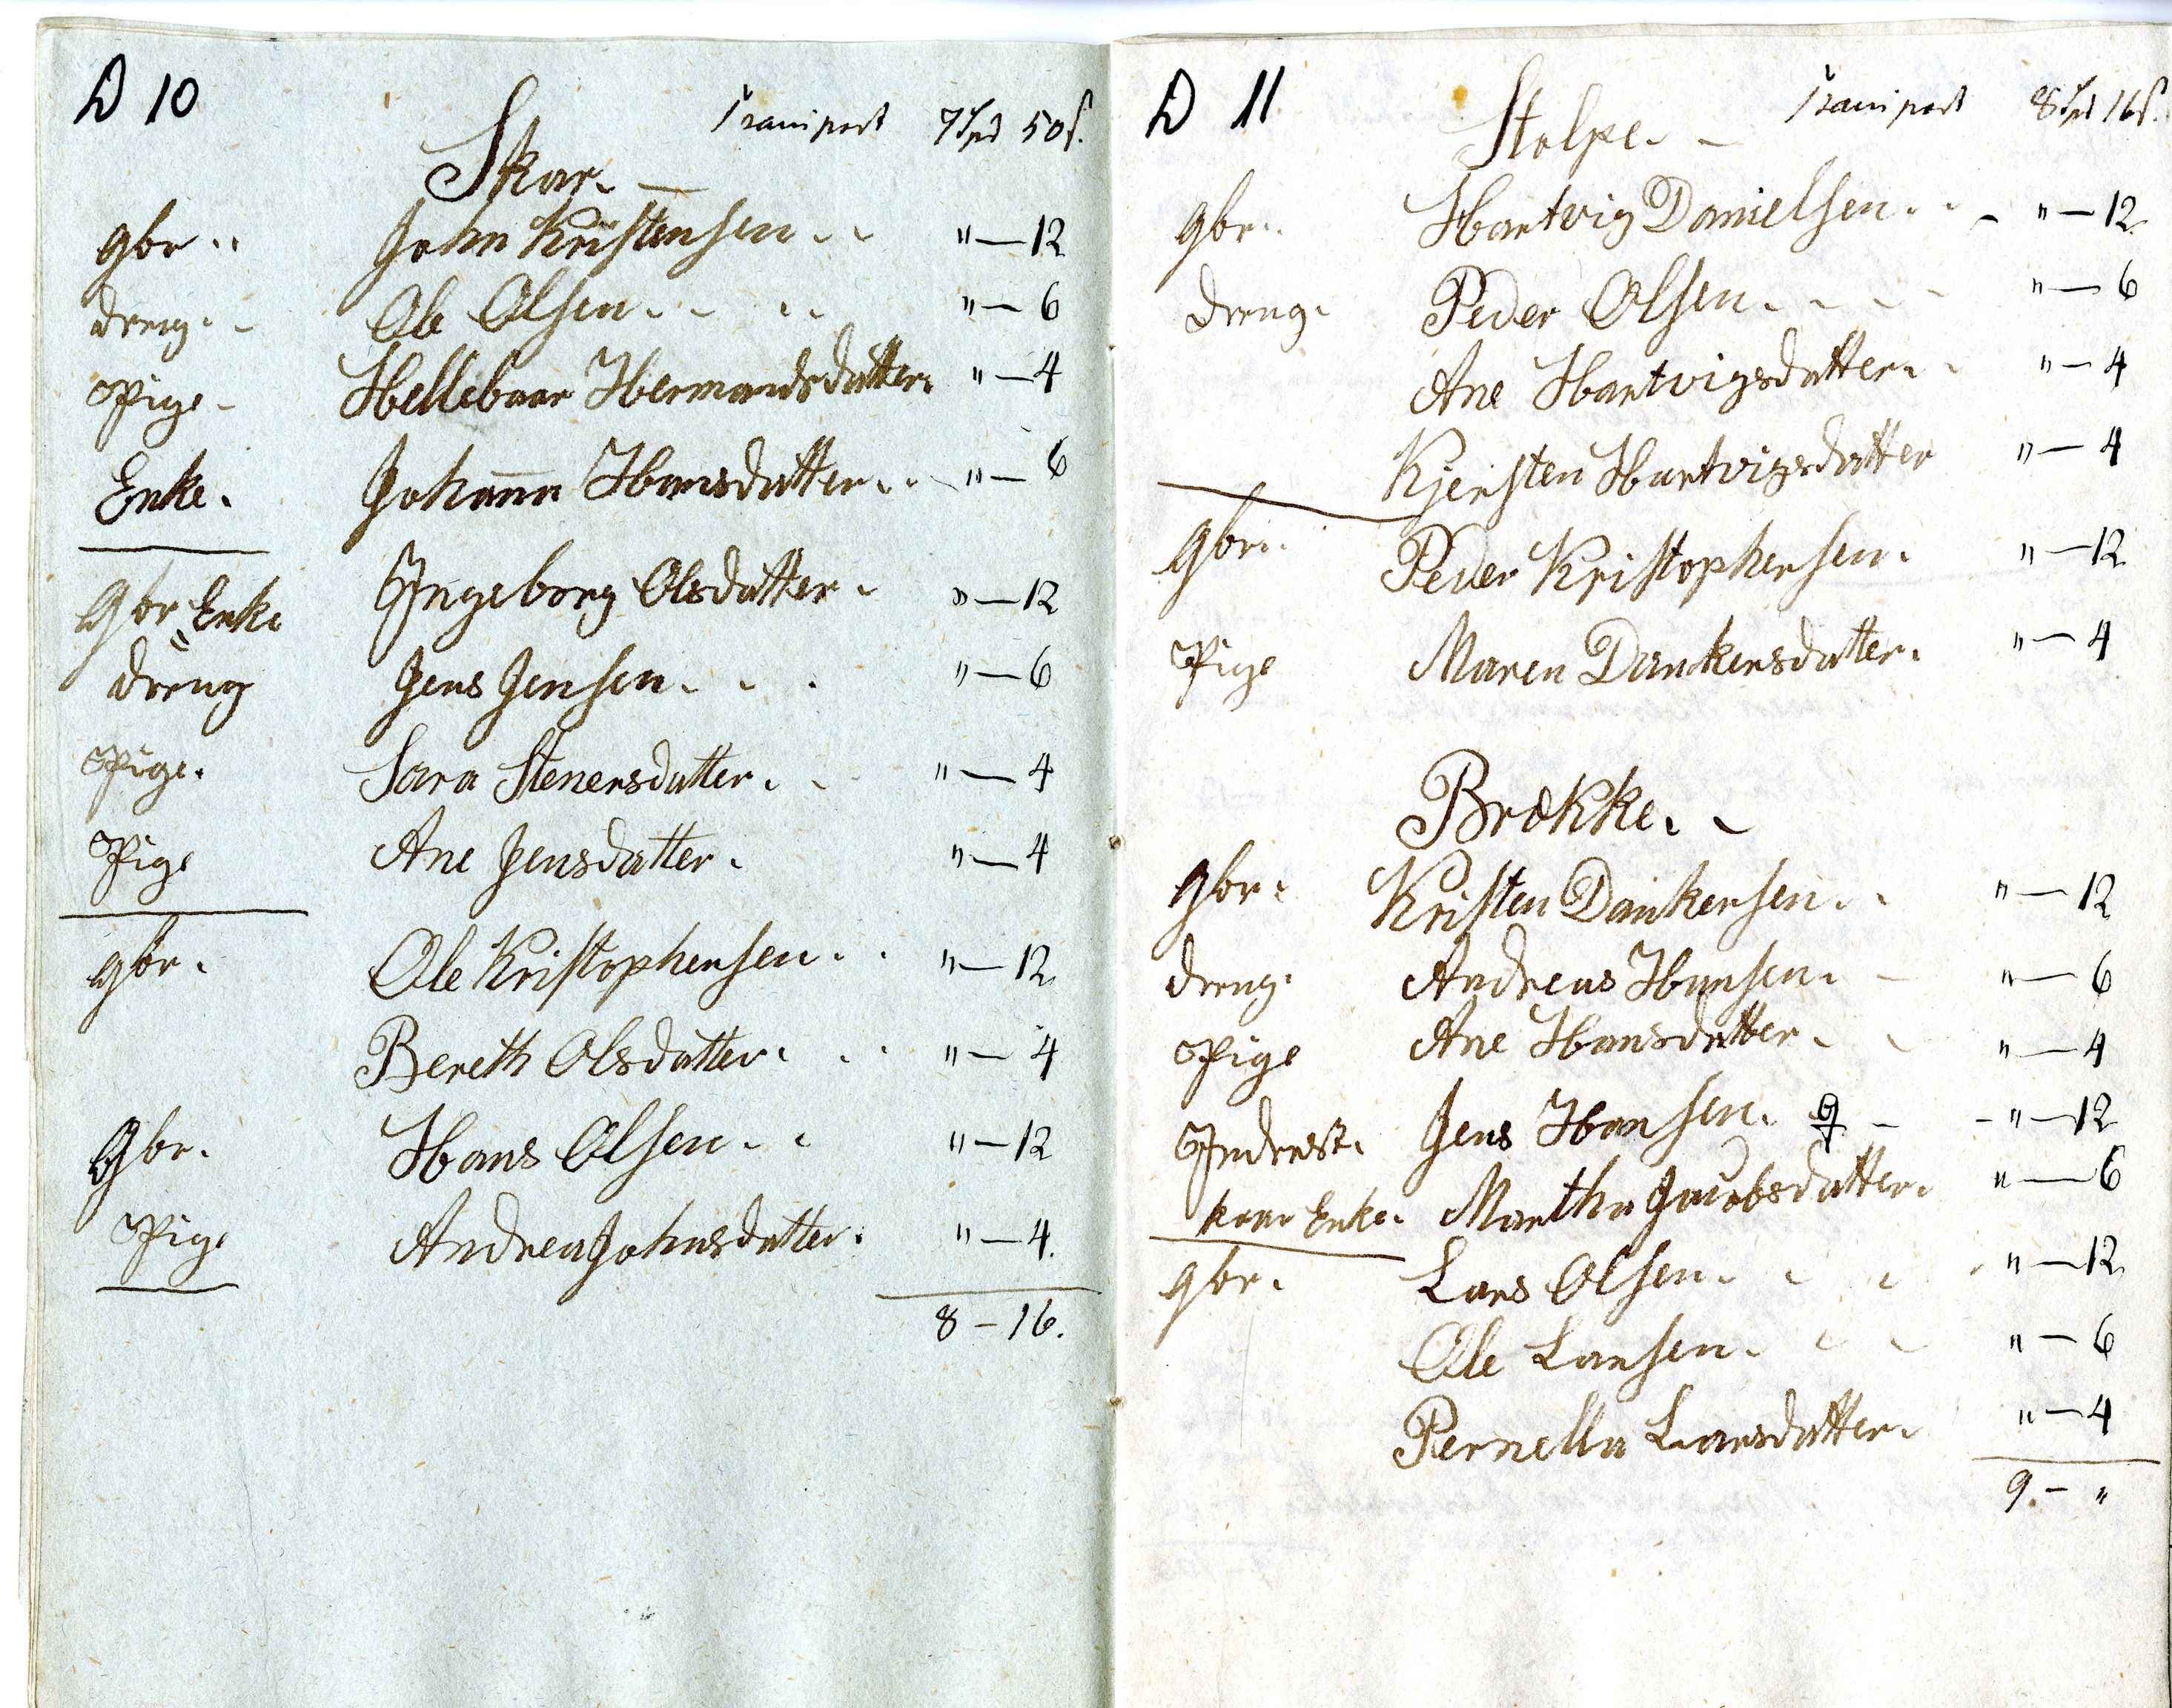 D 10
Transport 7 Spd 50 s.
Skar. —
Gbr.. John Kristensen .. "—12
dreng.. Ole Olsen .. .. "—6
Pige. Hellebaar Hermandsdatter. "—4
Enke. Johanna Hansdatter.. "—6
Gbr Enke Ingeborg Olsdatter. "—12
dreng Jens Jensen. . . "—6
Pige. Sara Stenersdatter. . "—4
Pige Ane Jensdatter. "—4
gbr. Ole Kristophersen. . "—12
Bereth Olsdatter. . . "—4
Gbr. Hans Olsen.. "—12
Pige Andrea Johnsdatter. "—4.
8–16.
D 11
Transport 8 Spd 16 s.
Stolpe. –
gbr.. Hartvig Danielsen.. – "—12
dreng. Peder Olsen. . . . "—6
Ane Hartvigsdatter.. "—4
Kjersten Hartvigsdatter "—4
gbr.. Peder Kristophersen. "—12
Pige Maren Dankersdatter. "—4
Brække. .
gbr. Kristen Dankersen.. "—12
dreng. Andreas Hansen. – "—6
Pige Ane Hansdatter. . "—4
Inderst. Jens Hansen. – – "—12
kaar Enke. Martha Jacobsdatter. "—6
gbr. Lars Olsen. . . . "—12
Ole Larsen. . . "—6
Pernella Larsdatter. "—4
9.– "